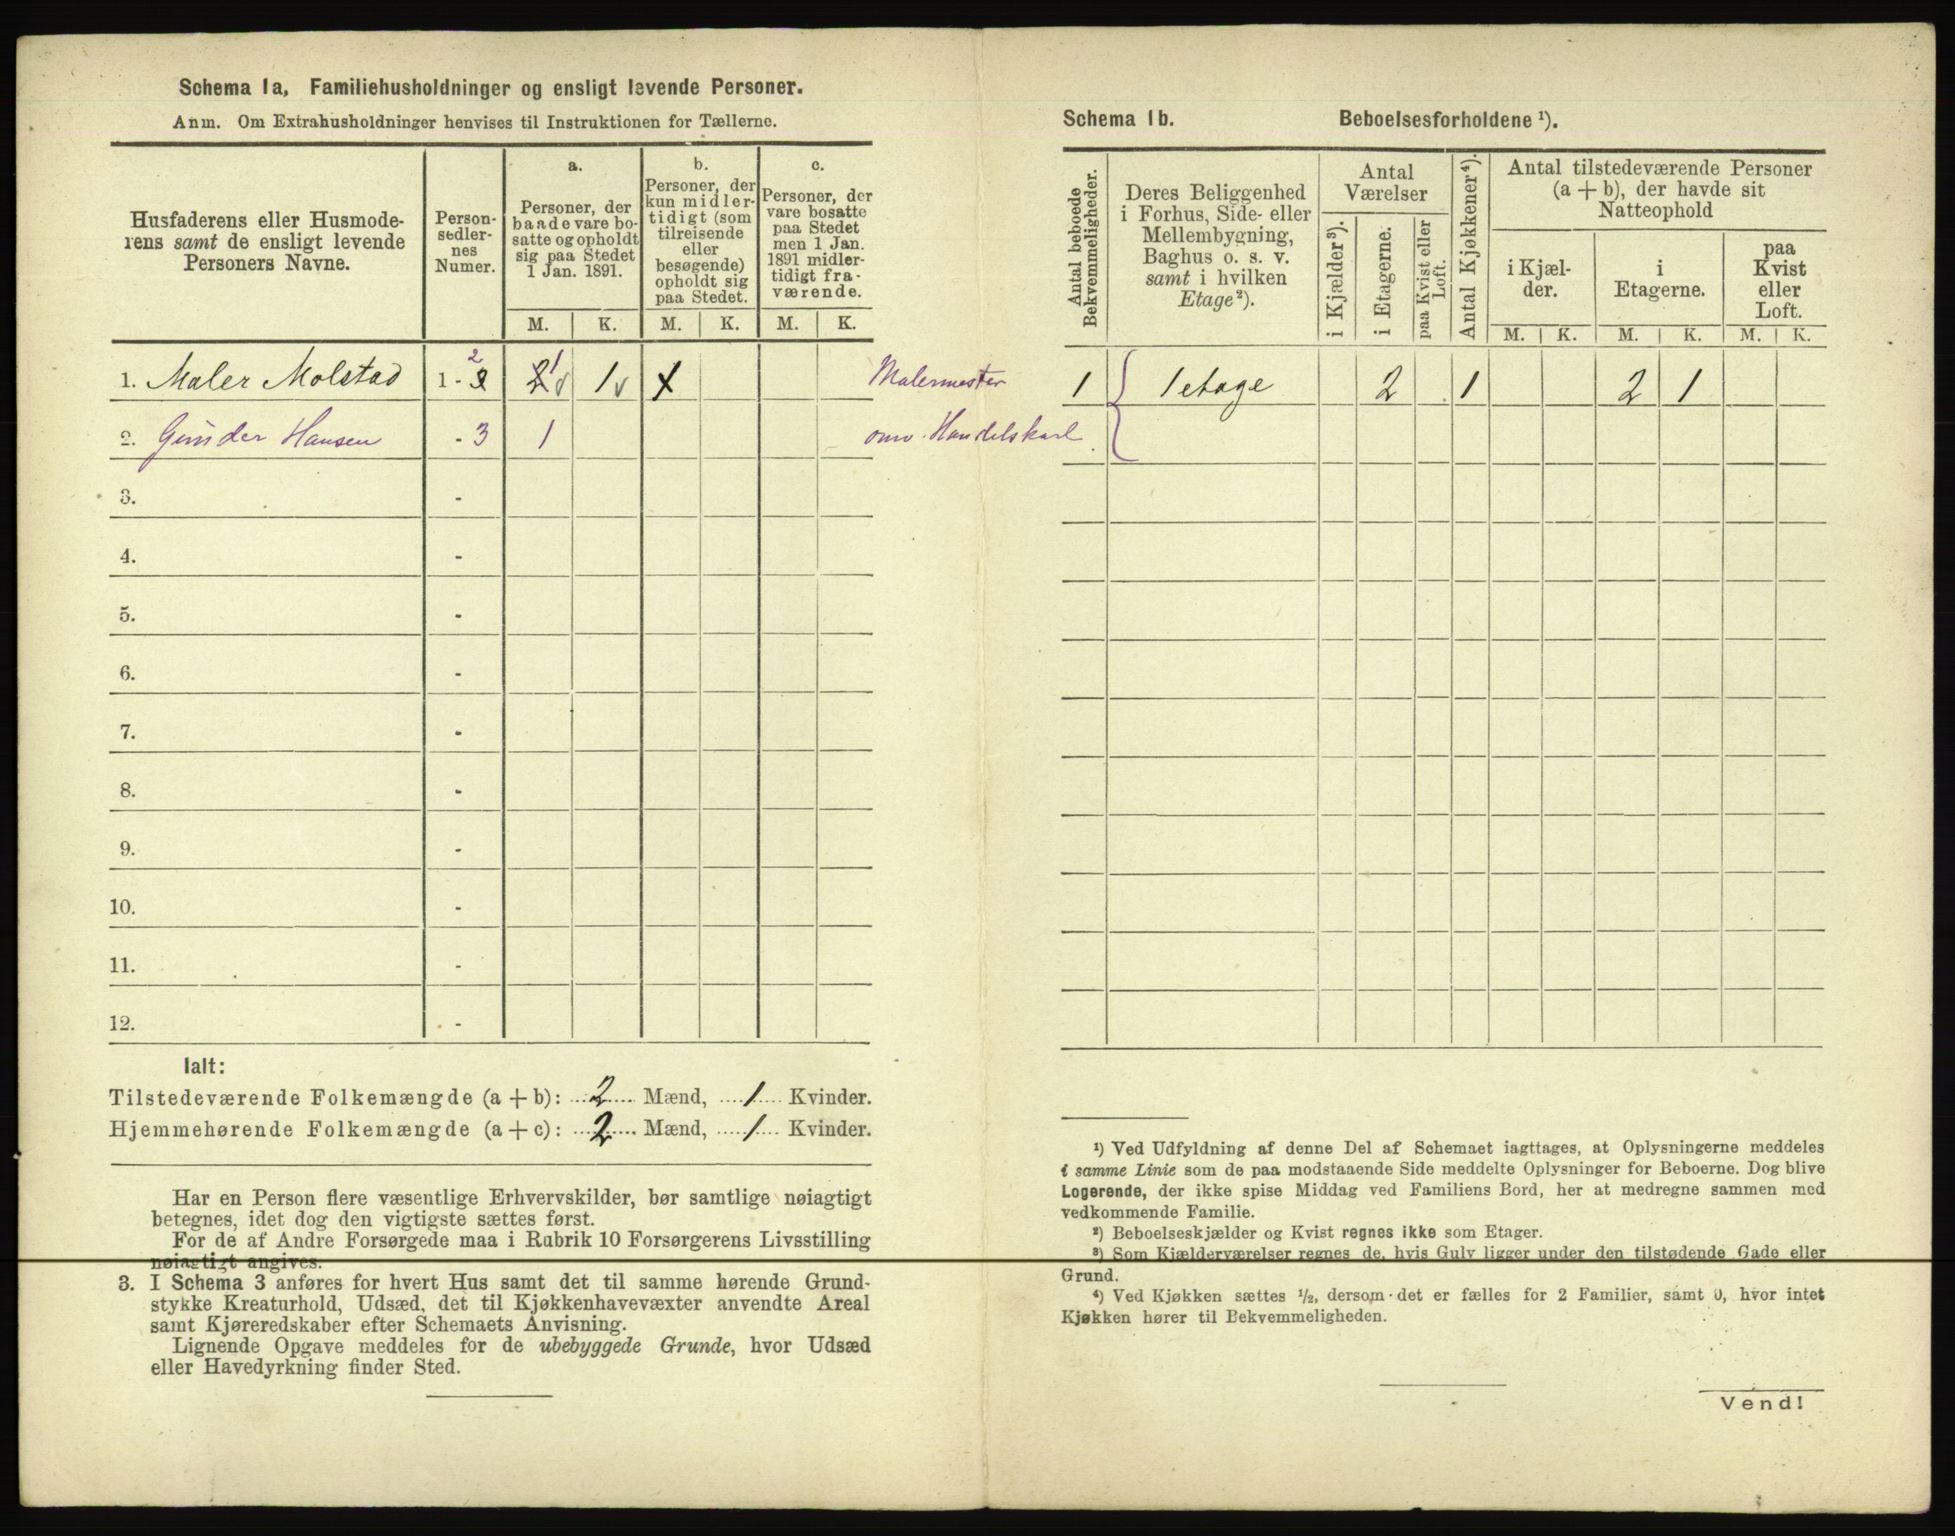 Schema 1a, Familiehusholdninger og ensligt levende Personer.
Anm. Om Extrahusholdninger henvises til Instruktionen for Tællerne.
Husfaderens eller Husmode-
rens samt de ensligt levende
Personers Navne.
Person-
sedler-
nes
Numer.
a.
Personer, der
baade vare bo-
satte og opholdt
sig paa Stedet
1 Jan. 1891.
b.
Personer, der
kun midler-
tidigt (som
tilreisende
eller
besøgende)
opholdt sig
paa Stedet.
c.
Personer, der
vare bosatte
paa Stedet
men 1 Jan.
1891 midler-
tidigt fra-
værende.
M. K. M. K. M. K.
1. Maler Molstad 1 - 2 1 1 Malermester
2. Gunder Hansen - 3 1 omv. Handelskarl
3. -
4. -
5. -
6. -
7. -
8. -
9. -
10. -
11. -
12. -
Ialt:
Tilstedeværende Folkemængde (a + b): 2 Mænd, 1 Kvinder.
Hjemmehørende Folkemængde (a + c): 2 Mænd, 1 Kvinder.
Har en Person flere væsentlige Erhvervskilder, bør samtlige nøiagtigt
betegnes, idet dog den vigtigste sættes først.
For de af Andre Forsørgede maa i Rubrik 10 Forsørgerens Livsstilling
nøiagtigt angives.
3. I Schema 3 anføres for hvert Hus samt det til samme hørende Grund-
stykke Kreaturhold, Udsæd, det til Kjøkkenhavevæxter anvendte Areal
samt Kjøreredskaber efter Schemaets Anvisning.
Lignende Opgave meddeles for de ubebyggede Grunde, hvor Udsæd
eller Havedyrkning finder Sted.
Schema 1b. Beboelsesforholdene ¹).
Antal beboede
Bekvemmeligheder.
Deres Beliggenhed
i Forhus, Side- eller
Mellembygning,
Baghus o. s. v.
samt i hvilken
Etage²).
Antal
Værelser
i Kjælder³).
i Etagerne.
paa Kvist eller
Loft.
Antal Kjøkkener⁴).
Antal tilstedeværende Personer
(a + b), der havde sit
Natteophold
i Kjæl-
der.
i
Etagerne.
paa
Kvist
eller
Loft.
M. K. M. K. M. K.
1 1 etage 2 1 2 1
¹) Ved Udfyldning af denne Del af Schemaet iagttages, at Oplysningerne meddeles
i samme Linie som de paa modstaaende Side meddelte Oplysninger for Beboerne. Dog blive
Logerende, der ikke spise Middag ved Familiens Bord, her at medregne sammen med
vedkommende Familie.
²) Beboelseskjælder og Kvist regnes ikke som Etager.
³) Som Kjælderværelser regnes de, hvis Gulv ligger under den tilstødende Gade eller
Grund.
⁴) Ved Kjøkken sættes ½, dersom det er fælles for 2 Familier, samt 0, hvor intet
Kjøkken hører til Bekvemmeligheden.
Vend!